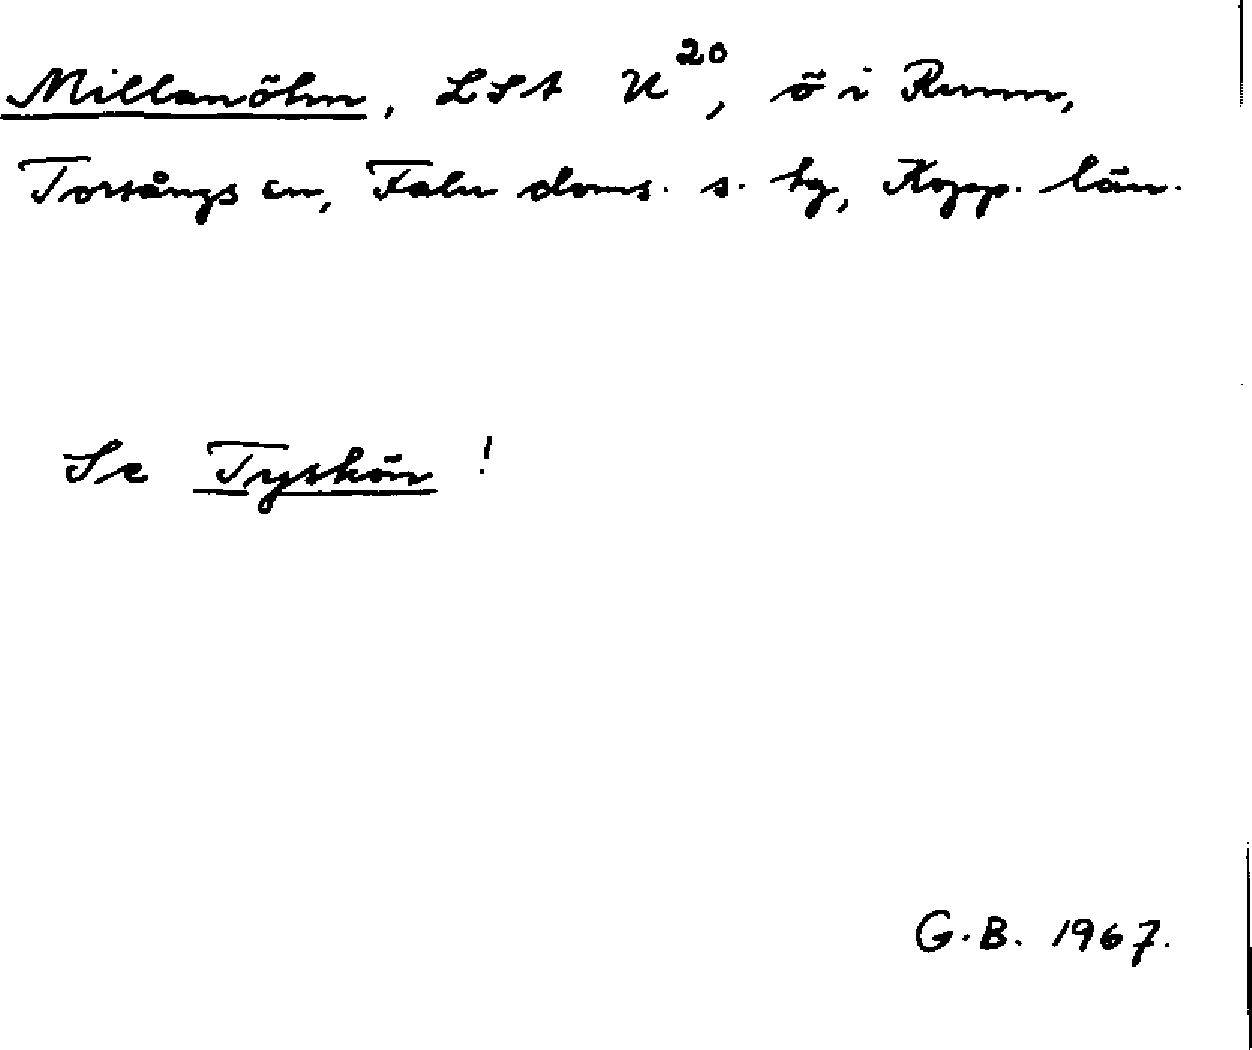 Millanöhn, LSA U²⁰, ö i Runn,
Torsångs sn, Falu doms. s. tg, Kopp. län.
Se Tyskön !
G.B. 1967.